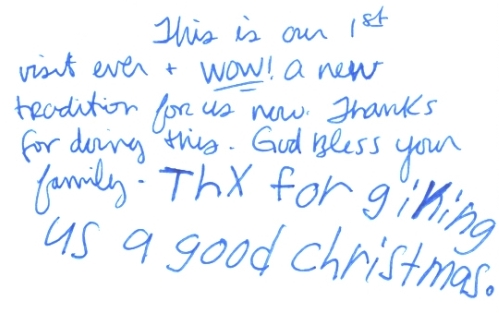 This is our 1st
visit ever + WOW! a new
tradition for us now. Thanks
for doing this. God Bless your
family. Thx for giking
us a good christmas.